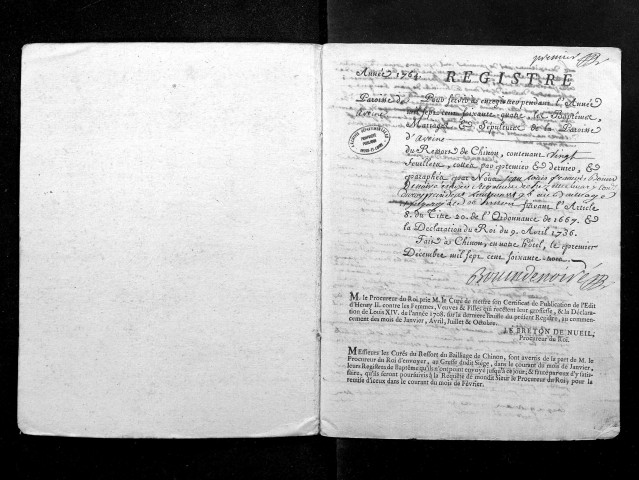 premier
Année 1764. REGISTRE
Paroisse de Pour servir à enregistrer pendant l'Année
Avoine mil sept cent soixante quatre, les Baptêmes,
Mariages & Sépultures de la Paroisse
d'Avoine
du Ressort de Chinon, contenant vingt
feuillets, cottés par premier & dernier, &
paraphés par Nous
suivant l'Article
8. du Titre 20. de l'Ordonnance de 1667. &
la Déclaration du Roi du 9. Avril 1736.
Fait à Chinon, en notre hôtel, le premier
Décembre mil sept cent soixante trois.
M. le Procureur du Roi prie M. le Curé de mettre son Certificat de Publication de l'Edit
d'Henry II. contre les Femmes, Veuves & Filles qui recelent leur grossesse, & la Déclara-
tion de Louis XIV. de l'année 1708. sur la derniere Feuille du présent Régistre, au commen-
cement des mois de Janvier, Avril, Juillet & Octobre.
LE BRETON DE NUEIL,
Procureur du Roi.
MEssieurs les Curés du Ressort du Bailliage de Chinon, sont avertis de la part de M. le
Procureur du Roi d'envoyer, au Greffe dudit Siége, dans le courant du mois de Janvier,
leurs Registres de Baptême qu'ils n'ont point envoyé jusqu'à ce jour, & faute par eux d'y satis-
faire, qu'ils seront poursuivis à la Requête de mondit Sieur le Procureur du Roi, pour la
remise d'iceux dans le courant du mois de Février.